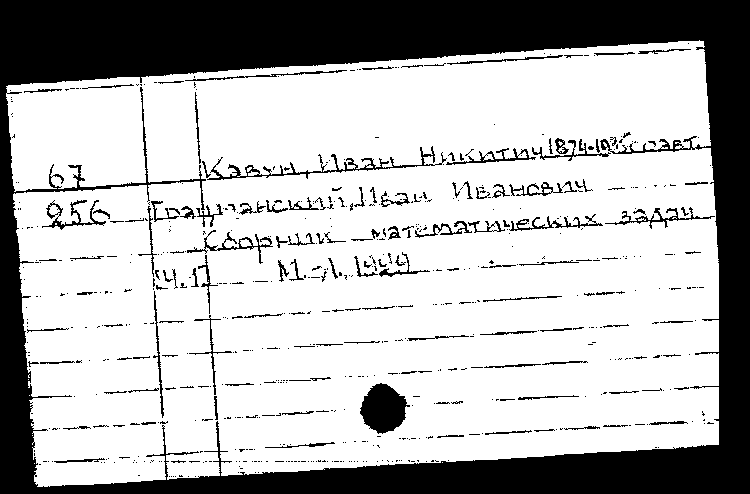 67 Кавун, Иван Никитич 1874-1935 соавт.
256 Грацианский, Иван Иванович
Сборник математических задач
[Ч.1] М.-Л. 1929